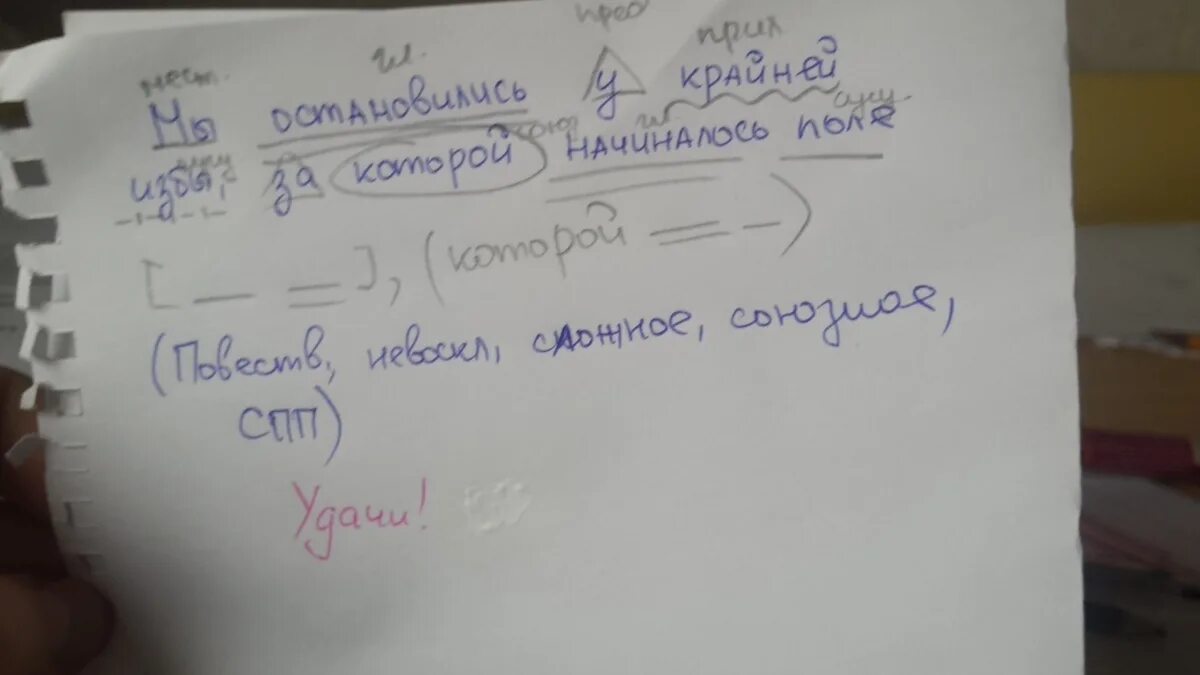 пред
мест. гл. прил
Мы остановились у крайней
сущ союз гл сущ.
избы, за которой начиналось поле
[ — = ], (которой = —)
(Повеств, невоскл, сложное, союзное,
СПП)
Удачи!